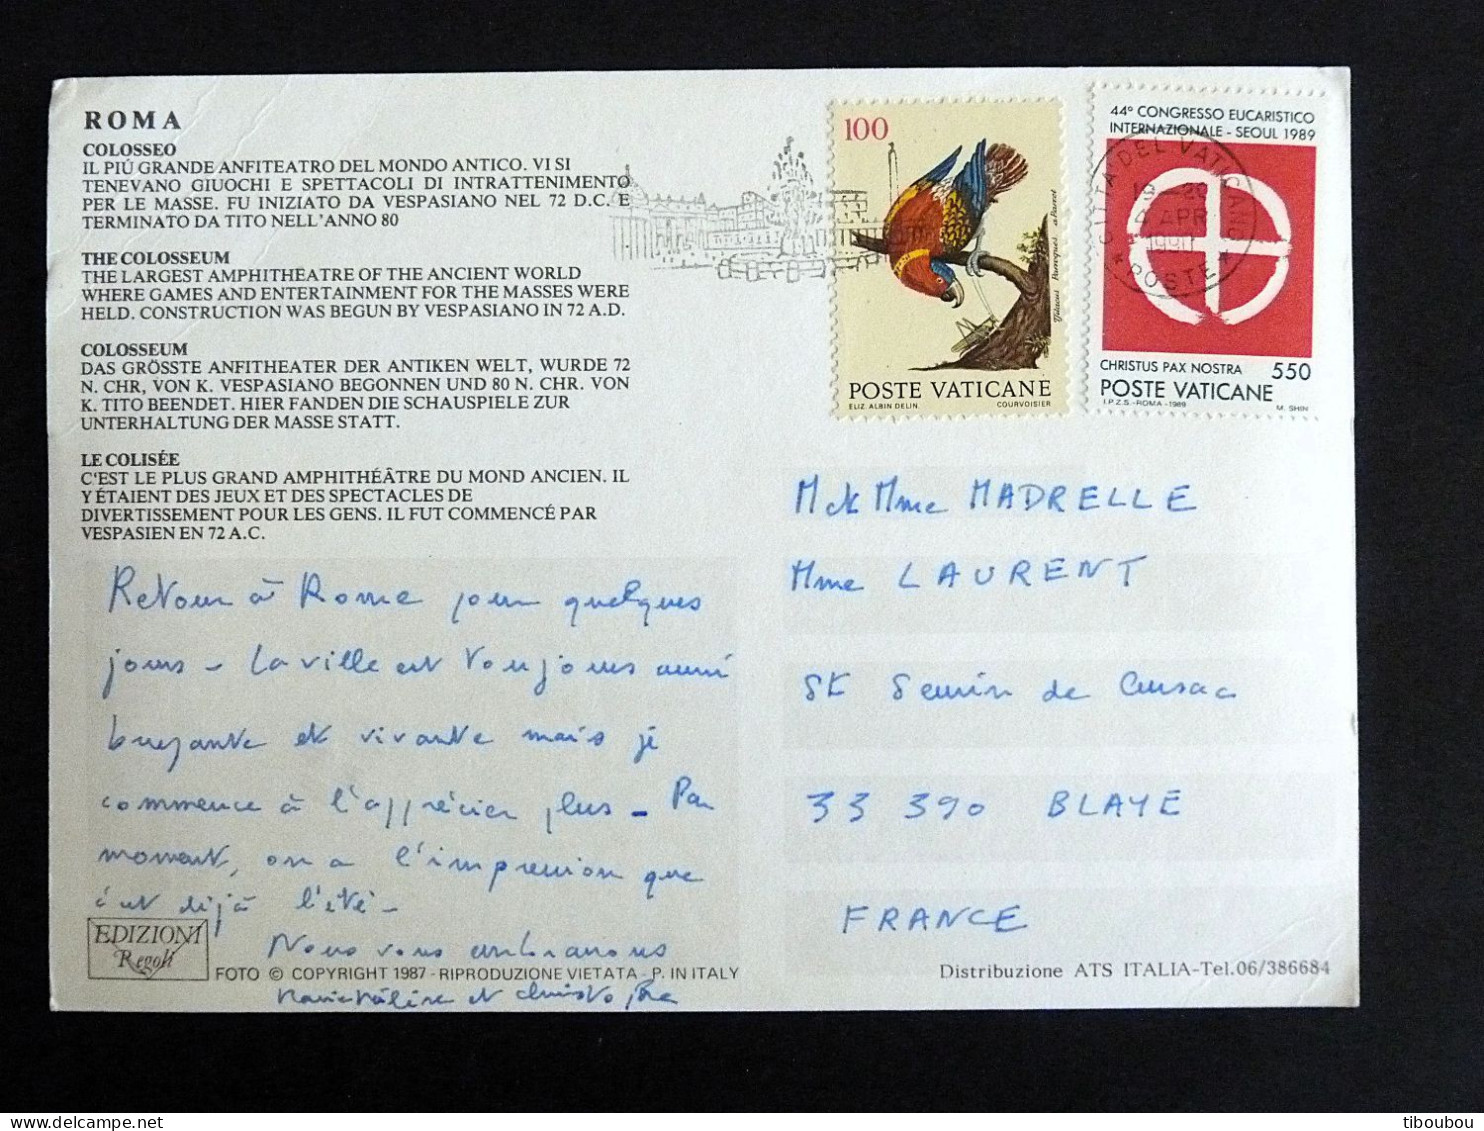 ROMA
COLOSSEO
IL PIÚ GRANDE ANFITEATRO DEL MONDO ANTICO. VI SI
TENEVANO GIUOCHI E SPETTACOLI DI INTRATTENIMENTO
PER LE MASSE. FU INIZIATO DA VESPASIANO NEL 72 D.C. E
TERMINATO DA TITO NELL'ANNO 80
THE COLOSSEUM
THE LARGEST AMPHITHEATRE OF THE ANCIENT WORLD
WHERE GAMES AND ENTERTAINMENT FOR THE MASSES WERE
HELD. CONSTRUCTION WAS BEGUN BY VESPASIANO IN 72 A.D.
COLOSSEUM
DAS GRÖSSTE ANFITHEATER DER ANTIKEN WELT, WURDE 72
N. CHR, VON K. VESPASIANO BEGONNEN UND 80 N. CHR. VON
K. TITO BEENDET. HIER FANDEN DIE SCHAUSPIELE ZUR
UNTERHALTUNG DER MASSE STATT.
LE COLISÉE
C'EST LE PLUS GRAND AMPHITHÉÂTRE DU MOND ANCIEN. IL
Y ÉTAIENT DES JEUX ET DES SPECTACLES DE
DIVERTISSEMENT POUR LES GENS. IL FUT COMMENCÉ PAR
VESPASIEN EN 72 A.C.
Retour à Rome pour quelques
jours - La ville est toujours aussi
bruyante et vivante mais je
commence à l'apprécier plus - Par
moment, on a l'impression que
c'est déjà l'été -
Nous vous embrassons
Marie Hélène et Christophe
EDIZIONI
Regoli
FOTO © COPYRIGHT 1987 - RIPRODUZIONE VIETATA - P. IN ITALY
100
Psitacus Paroquet
POSTE VATICANE
ELIZ. ALBIN DELIN. COURVOISIER
44º CONGRESSO EUCARISTICO
INTERNAZIONALE - SEOUL 1989
CHRISTUS PAX NOSTRA 550
POSTE VATICANE
I.P.Z.S. - ROMA - 1989 M. SHIN
CITTA DEL VATICANO
19 - 20
APR
POSTE
M et Mme MADRELLE
Mme LAURENT
St Seurin de Cursac
33 390 BLAYE
FRANCE
Distribuzione ATS ITALIA-Tel.06/386684
tiboubou